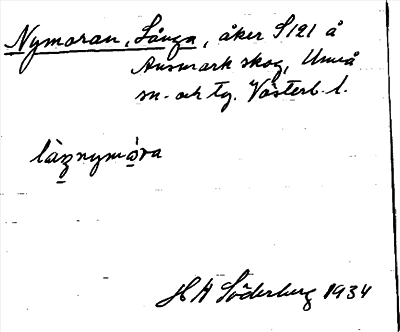 Nymoran, Långa, åker S121 å
Ansmark skog, Umeå
sn. och tg. Västerb. l.
làŋnymọ̀ra
H A Söderberg 1934